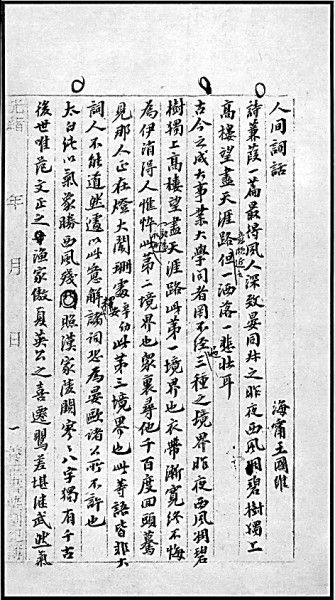 人间詞話 海甯王國維
詩蒹葭一篇最得風人深致晏同叔之昨夜西風凋碧樹獨上
高樓望盡天涯路意頗近之但一洒落一悲壯耳
古今之成大事業大學問者罔不經過三種之境界昨夜西風凋碧
樹獨上高樓望盡天涯路此第一境界也衣帶漸寬終不悔
為伊消得人憔悴此第二境界也衆裏尋他千百度回頭驀
見那人正在燈火闌珊處此第三境界也此等語皆非大
詞人不能道然遽以此意解釋諸詞恐為晏歐諸公所不許也
太白純以氣象勝西風殘照漢家陵闕寥寥八字獨有千古
後世唯范文正之漁家傲夏英公之喜遷鶯差堪繼武然氣
光緒 年 月 日 一